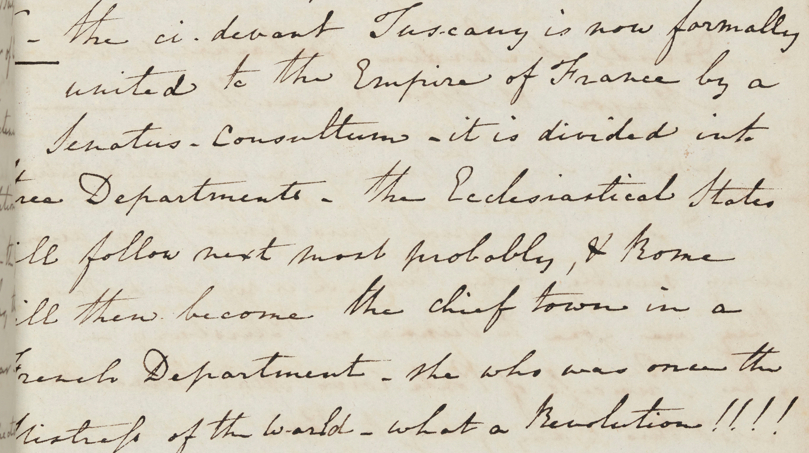 - the ci-devant Tuscany is now formally
united to the Empire of France by a
Senatus-Consultum - it is divided into
ree Departments - the Ecclesiastical States
ill follow next most probably, & Rome
ill then become the chief town in a
French Department - she who was once the
Mistress of the World - what a Revolution!!!!